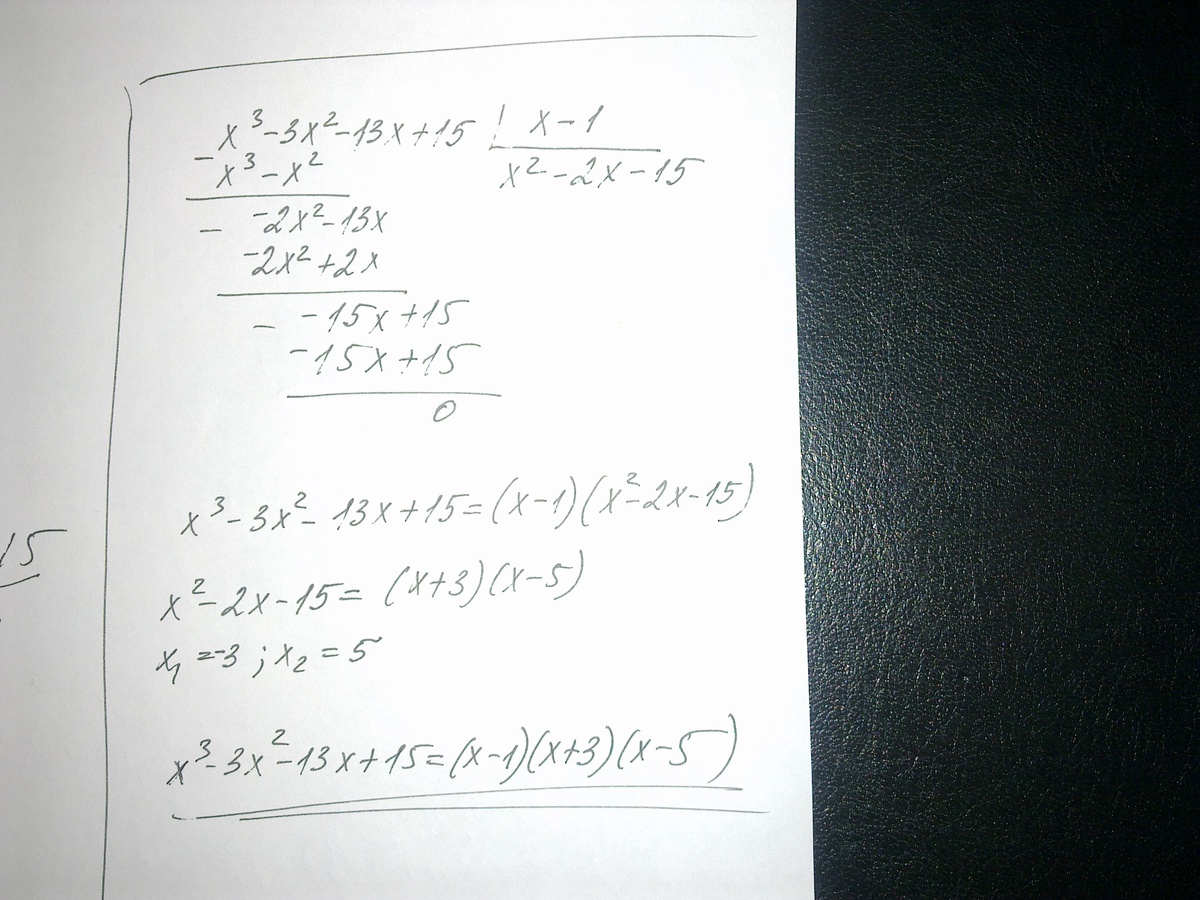 x³-3x²-13x+15 | x-1
- x³-x² x²-2x-15
- -2x²-13x
-2x²+2x
- -15x+15
-15x+15
0
x³-3x²-13x+15=(x-1)(x²-2x-15)
15
x²-2x-15= (x+3)(x-5)
x₁=-3 ; x₂=5
x³-3x²-13x+15=(x-1)(x+3)(x-5)